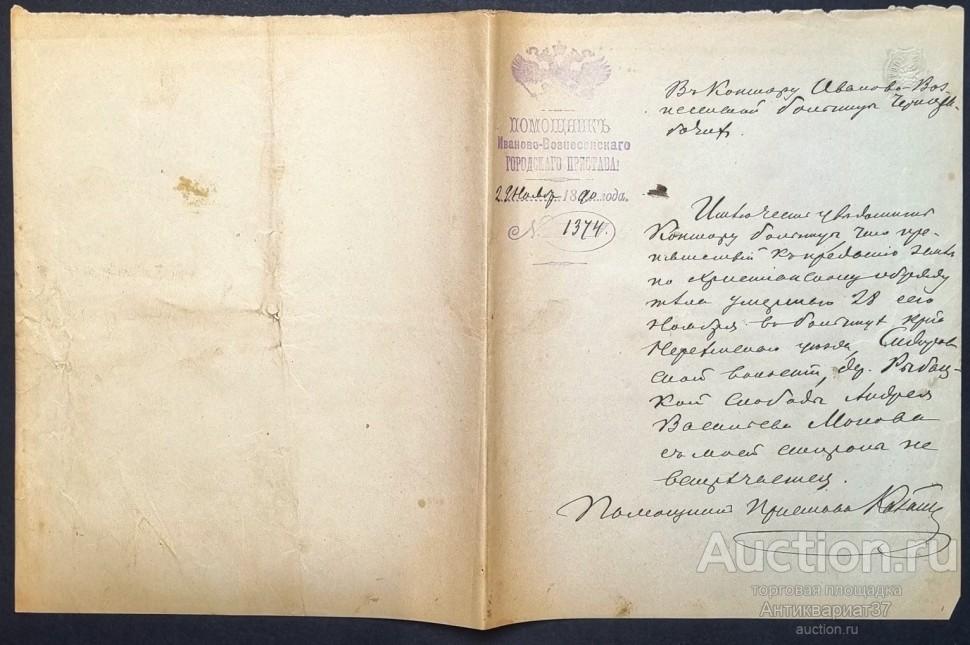 ПОМОЩНИКЪ
Иваново-Вознесенскаго
ГОРОДСКАГО ПРИСТАВА
29 Нояб 1890 года.
№ 1374.
Въ Контору Иваново-Воз-
несенской больницы
бочихъ.
Контору больницы что пре-
пятствій къ преданію землѣ
по христіанскому обряду
тѣла умершаго 28 сего
Ноября въ больницѣ
уѣзда, Сидоров
ской волости, дер. Рыбац-
кой слободы Андрея
Васильева Монова
съ моей стороны не
встрѣчается.
Помощникъ Пристава
Auction.ru
торговая площадка
Антиквариат37
auction.ru